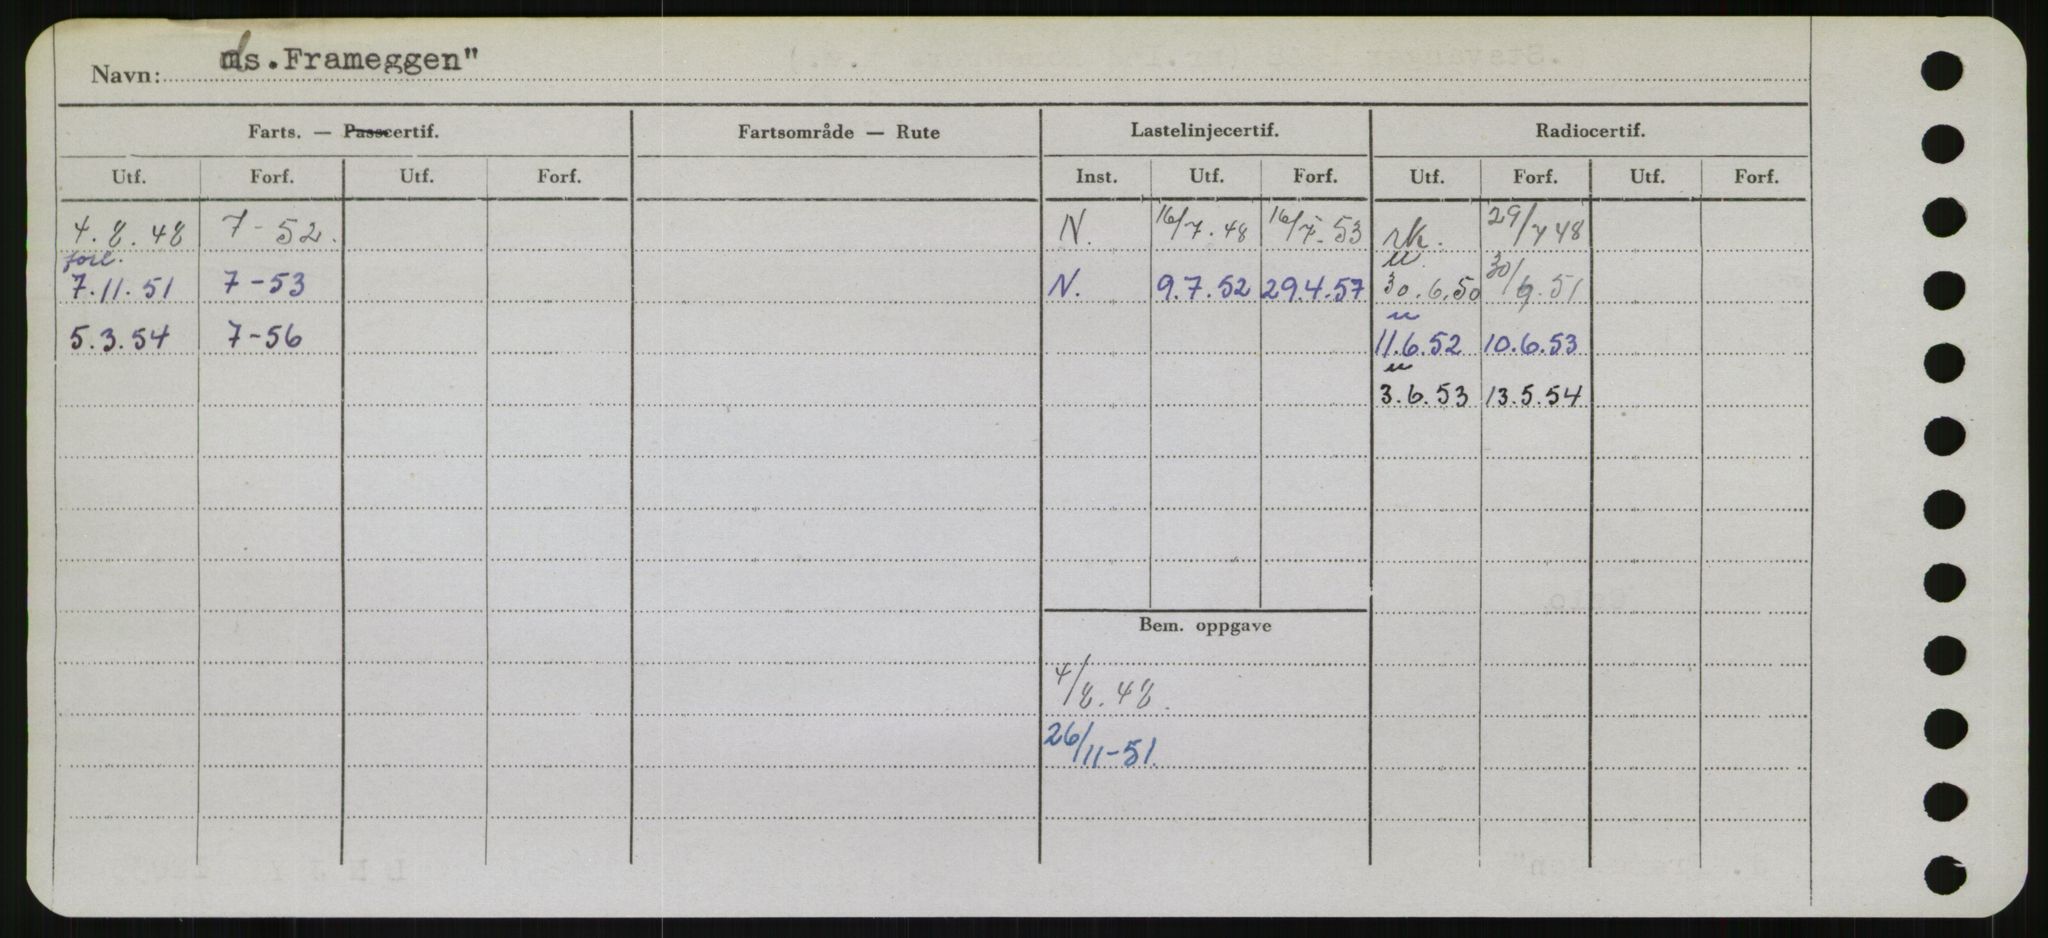 Navn: ms. Frameggen"
Farts. — Passcertif. Fartsområde — Rute Lastelinjecertif. Radiocertif.
Utf. Forf. Utf. Forf. Inst. Utf. Forf. Utf. Forf. Utf. Forf.
4.8.48 7-52. N. 16/7.48 16/7-53 rk. 29/7 48
forl. u
7.11.51 7-53 N. 9.7.52 29.4.57 30.6.50 30/6.51
u
5.3.54 7-56 11.6.52 10.6.53
u
3.6.53 13.5.54
Bem. oppgave
4/8.48.
26/11-51.